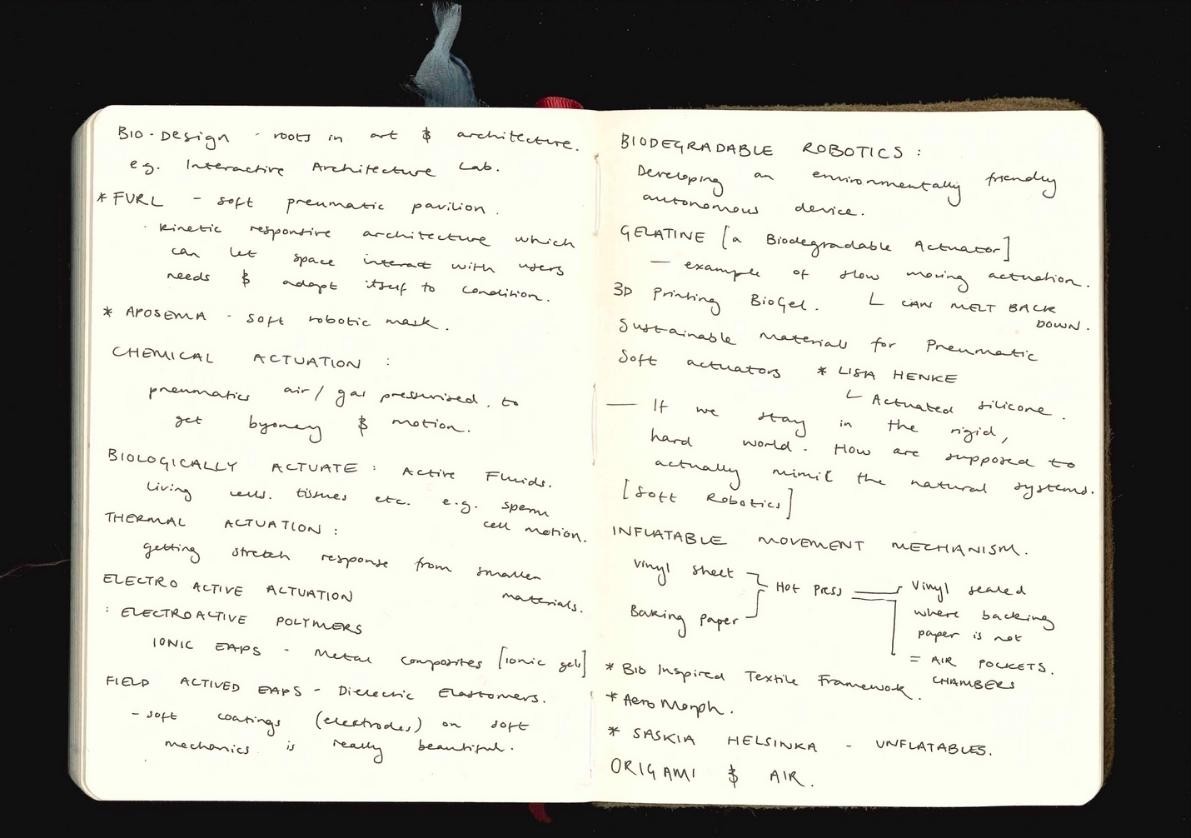 BIO-Design - roots in art & architecture.
e.g. Interactive Architecture Lab.
* FURL - soft pneumatic pavilion.
· kinetic responsive architecture which
can let space interact with users
needs & adapt itself to condition.
* APOSEMA - soft robotic mask.
CHEMICAL ACTUATION :
pneumatics air/gas pressurised. to
get & motion.
BIOLOGICALLY ACTUATE : Active Fluids.
living cells. tissues etc. e.g. sperm
cell motion.
THERMAL ACTUATION :
getting stretch response from smaller
materials.
ELECTRO ACTIVE ACTUATION
: ELECTROACTIVE POLYMERS
IONIC EAPS - Metal composites [ionic gels]
FIELD ACTIVED EAPS - Dielectric Elastomers.
- soft coatings (electrodes) on soft
mechanics is really beautiful.
BIODEGRADABLE ROBOTICS :
Developing an environmentally friendly
autonomous device.
GELATINE [a Biodegradable Actuator]
— example of slow moving actuation.
3D Printing BioGel. L CAN MELT BACK
DOWN.
Sustainable materials for Pneumatic
Soft actuators * LISA HENKE
L Actuated silicone.
— If we stay in the rigid,
hard world. How are supposed to
actually mimic the natural systems.
[Soft Robotics]
INFLATABLE MOVEMENT MECHANISM.
Vinyl sheet
Baking paper
HOT PRESS
Vinyl sealed
where backing
paper is not
= AIR POCKETS.
CHAMBERS
* BIO Inspired Textile Framework.
* AeroMorph.
* SASKIA HELSINKA - UNFLATABLES.
ORIGAMI & AIR.